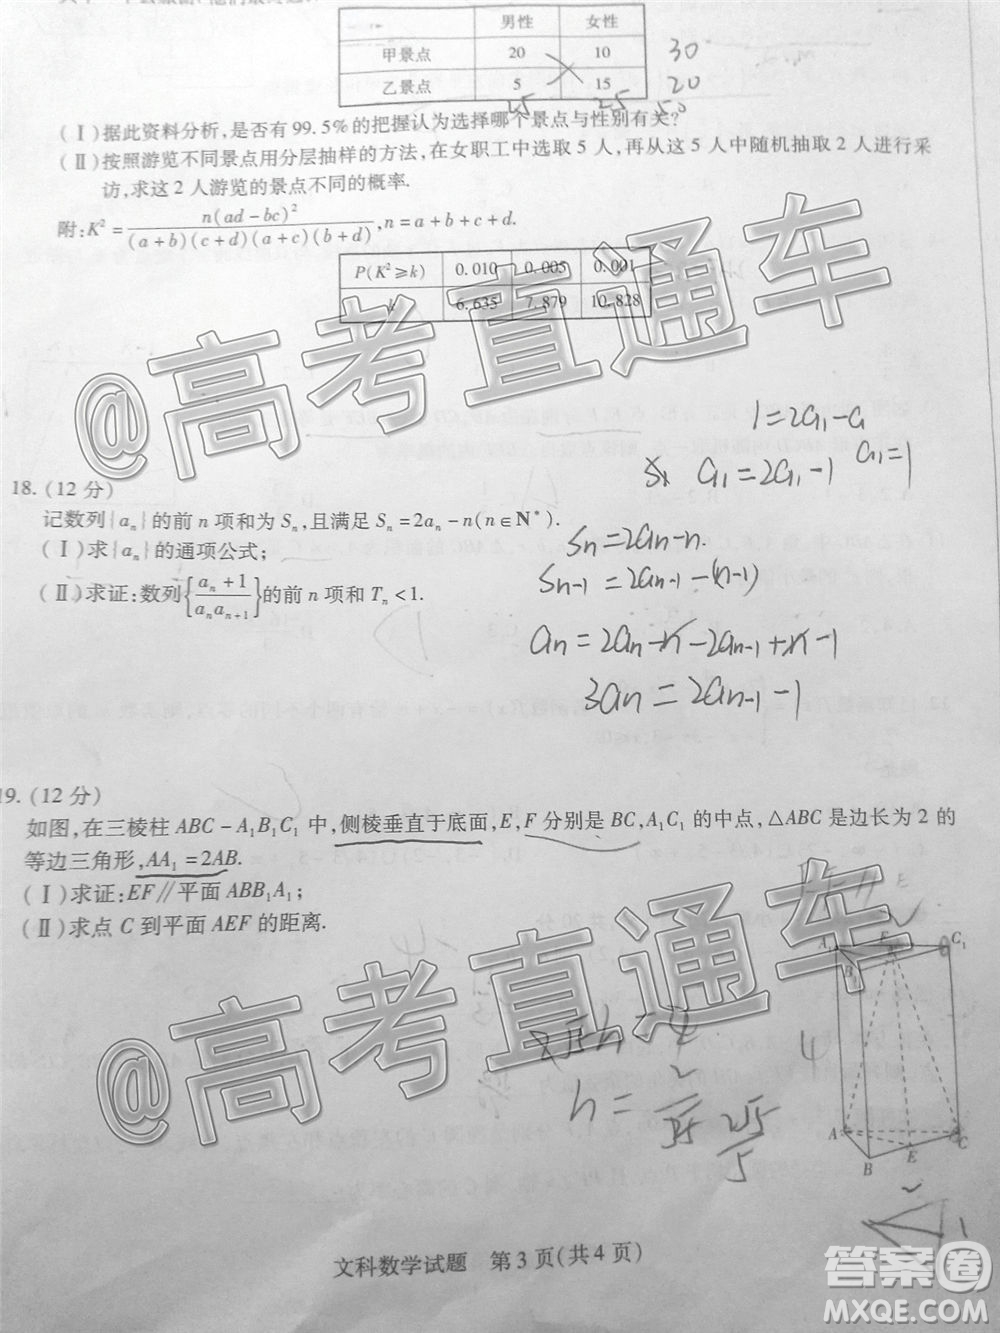 男性 女性
甲景点 20 10 30
乙景点 5 15 20
25 25 50
(Ⅰ)据此资料分析,是否有99.5%的把握认为选择哪个景点与性别有关?
(Ⅱ)按照游览不同景点用分层抽样的方法,在女职工中选取5人,再从这5人中随机抽取2人进行采
访,求这2人游览的景点不同的概率.
附:K²=n(ad-bc)²/((a+b)(c+d)(a+c)(b+d)),n=a+b+c+d.
P(K²≥k) 0.010 0.005 0.001
k 6.635 7.879 10.828
@高考直通车
1=2a₁-a
a₁=2a₁-1 a₁=1
18.(12分)
记数列{aₙ}的前n项和为Sₙ,且满足Sₙ=2aₙ-n(n∈N*).
(Ⅰ)求{aₙ}的通项公式;
(Ⅱ)求证:数列{(aₙ+1)/(aₙaₙ₊₁)}的前n项和Tₙ<1.
Sₙ=2aₙ-n
Sₙ₋₁=2aₙ₋₁-(n-1)
aₙ=2aₙ-n-2aₙ₋₁+n-1
3aₙ=2aₙ₋₁-1
19.(12分)
如图,在三棱柱ABC-A₁B₁C₁中,侧棱垂直于底面,E,F分别是BC,A₁C₁的中点,△ABC是边长为2的
等边三角形,AA₁=2AB.
(Ⅰ)求证:EF∥平面ABB₁A₁;
(Ⅱ)求点C到平面AEF的距离.
A₁ F C₁
B₁
4
A C
B E
@高考直通车
h=2/√5 2√5/5
文科数学试题 第3页(共4页)
答案圈
MXQE.COM